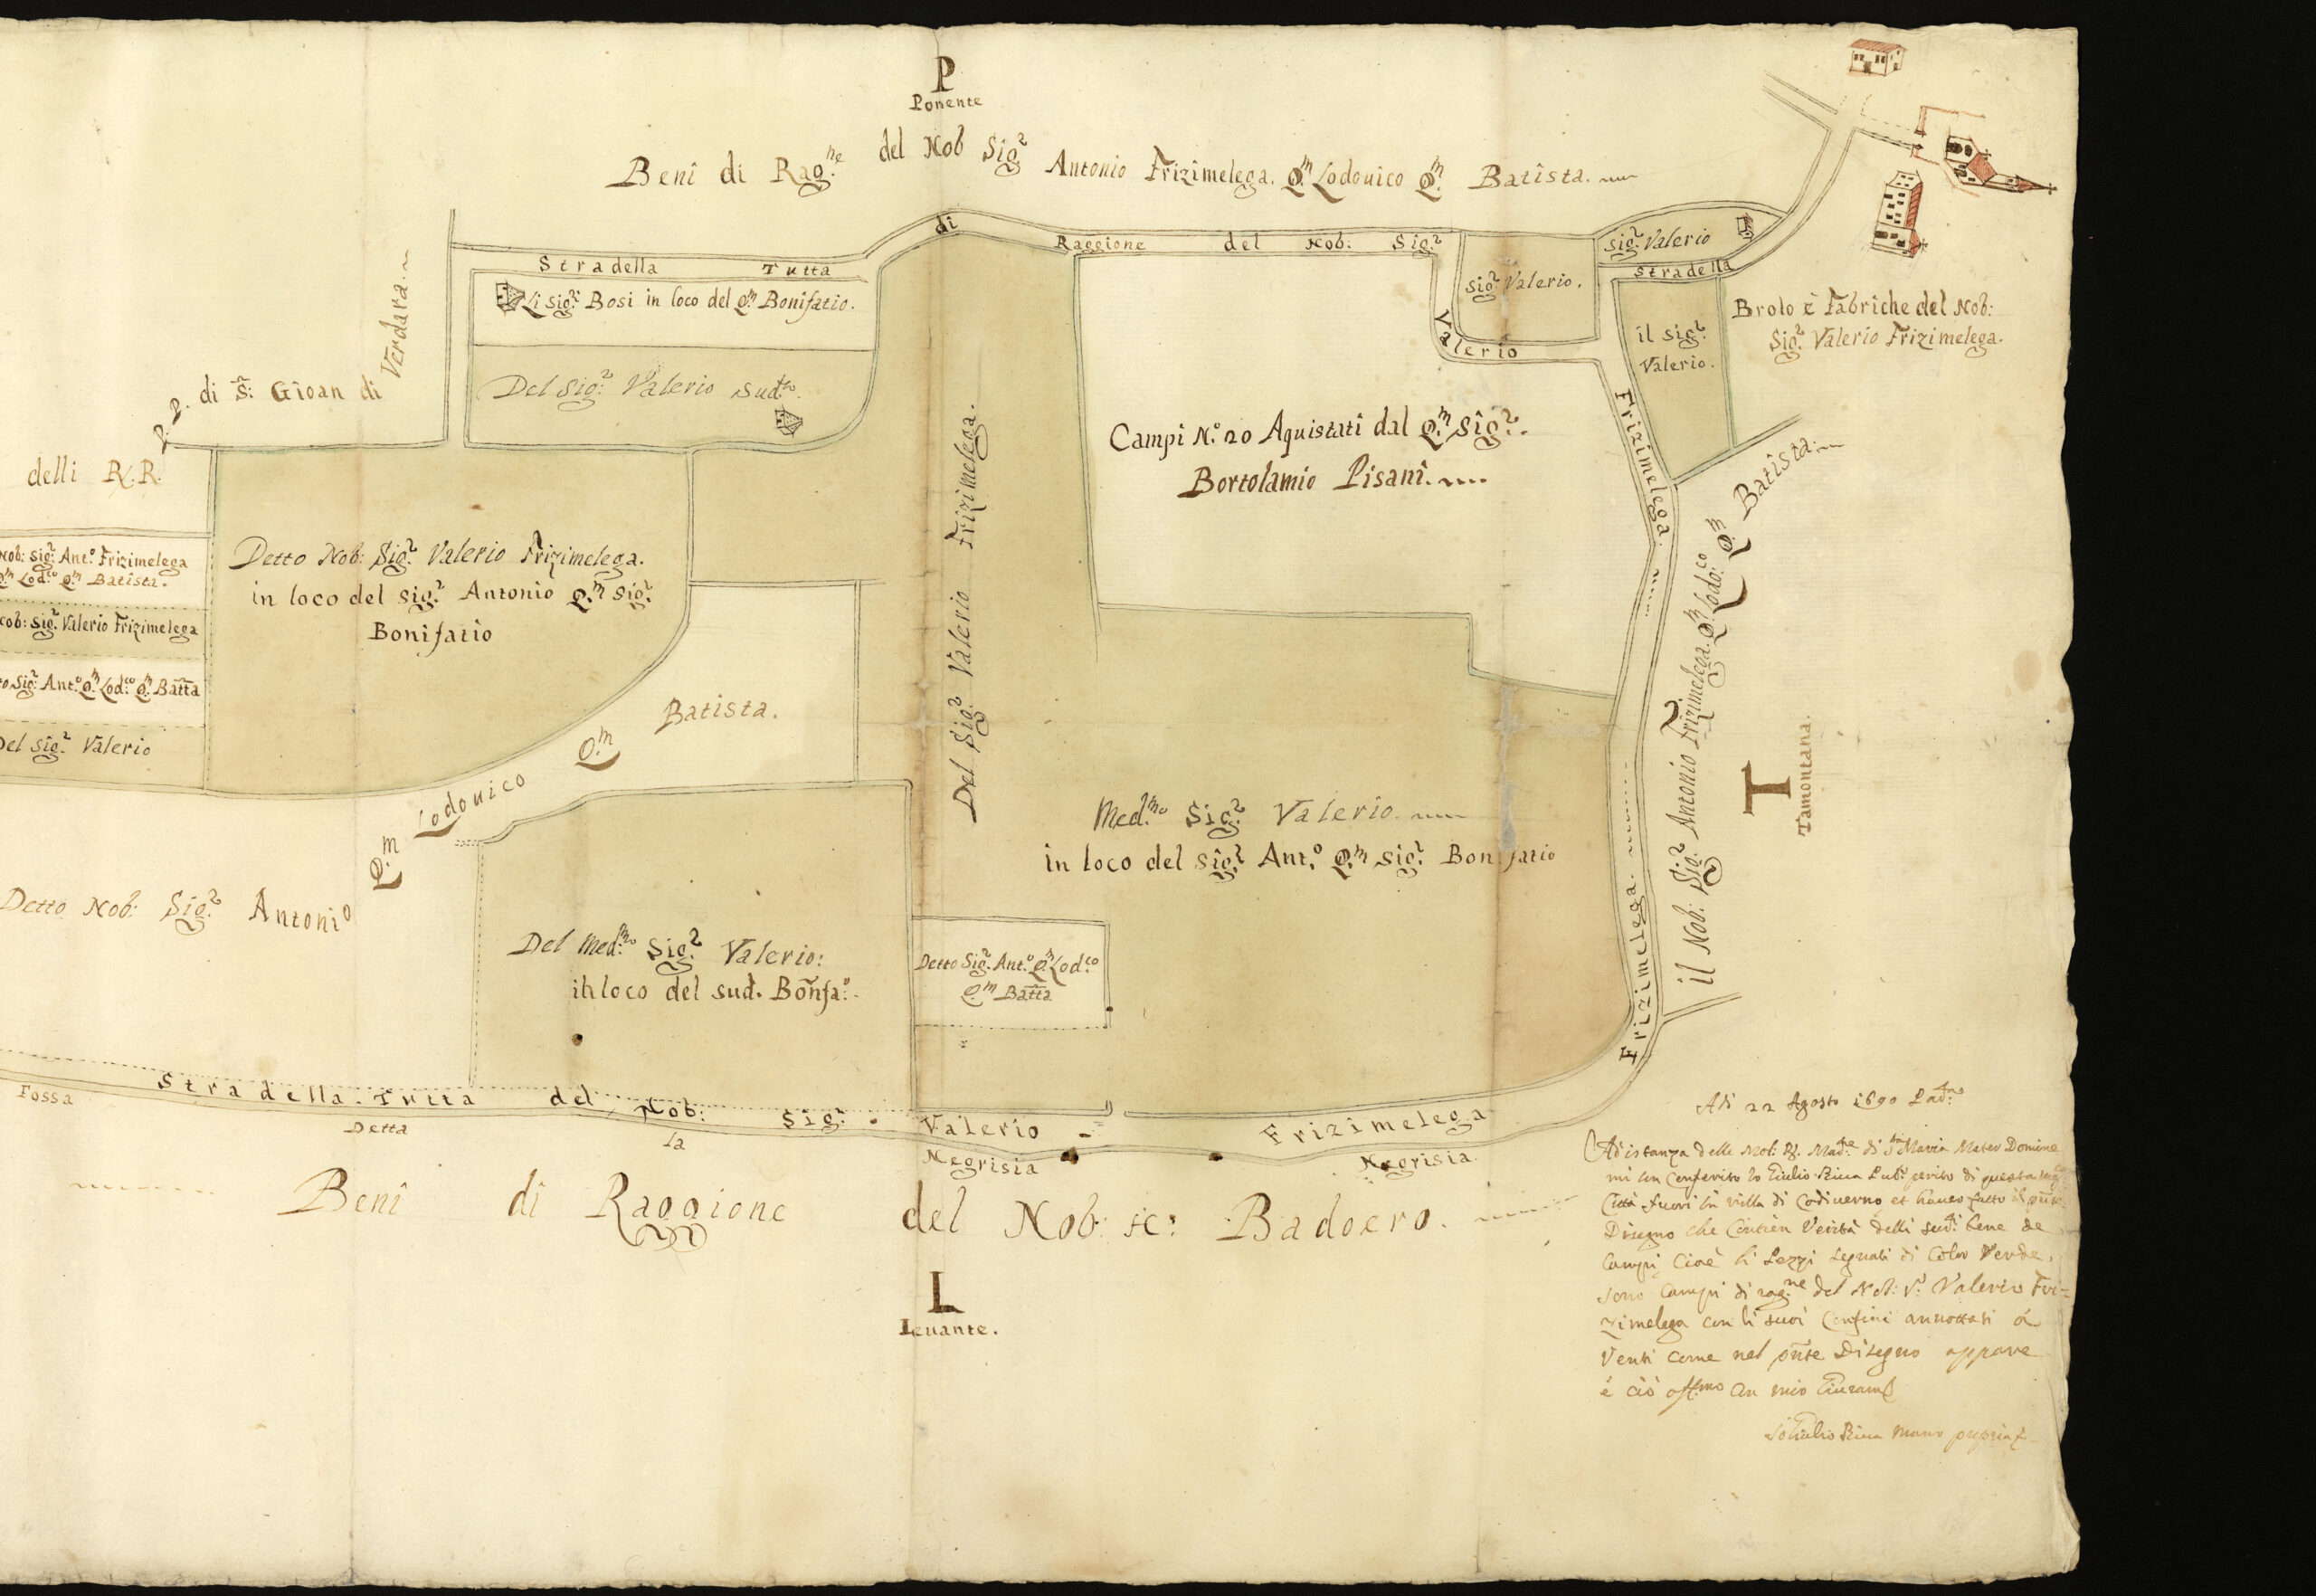 P
Ponente
Beni di Rag.ne del Nob Sig.r Antonio Frizimelega. Q.m Lodouico Q.m Batista.
Stradella Tutta di Raggione del Nob: Sig.r Valerio Frizimelega.
Li Sig.ri Bosi in loco del Q.m Bonifatio.
Del Sig.r Valerio sud.to.
sig.r Valerio.
sig.r Valerio
stradella
il Sig.r
Valerio.
Brolo è Fabriche del Nob:
Sig.r Valerio Frizimelega.
delli R.R. P.P. di S: Gioan di Verdara.
Nob: Sig.r Ant.o Frizimelega
Q.m Lod.co Q.m Batista.
Nob: Sig.r Valerio Frizimelega
Sig.r Ant.o Q.m Lod.co Q.m Batta
Del Sig.r Valerio
Detto Nob: Sig.r Valerio Frizimelega.
in loco del sig.r Antonio Q.m Sig.r
Bonifatio
Del Sig.r Valerio Frizimelega.
Campi N.o 20 Aquistati dal Q.m Sig.r
Bortolamio Pisani.
Detto Nob: Sig.r Antonio Q.m Lodouico Q.m Batista.
Med.mo Sig.r Valerio.
in loco del Sig.r Ant.o Q.m Sig.r Bonifatio
Del Med.mo Sig.r Valerio:
in loco del sud. Bonfa.o
Detto Sig.r Ant.o Q.m Lod.co
Q.m Batta
il Nob: Sig.r Antonio Frizimelega. Q.m Lodo.co Q.m Batista.
T
Tamontana.
Frizimelega.
Stradella. Tutta del Nob: Sig.r Valerio Frizimelega
Fossa Detta la Negrisia Negrisia
Beni di Raggione del Nob: Badoero.
L
Leuante.
Adi 22 Agosto 1690
Ad istanza delle Mol: R. Mad.re di S.ta Maria Mater Domine
mi son Conferito Io Giulio perito di questa
Città fuori in villa di Codiuerno et hauer fatto il
Disegno che Contien Verità delli sud.i bene de
Campi Cioè li Pezzi segnati di Color Verde.
sono Campi di rag.ne del Nob: S.r Valerio Fri-
zimelega con li suoi Confini annottati à
Venti come nel Disegno appare
è ciò con mio
Io Giulio mano propria